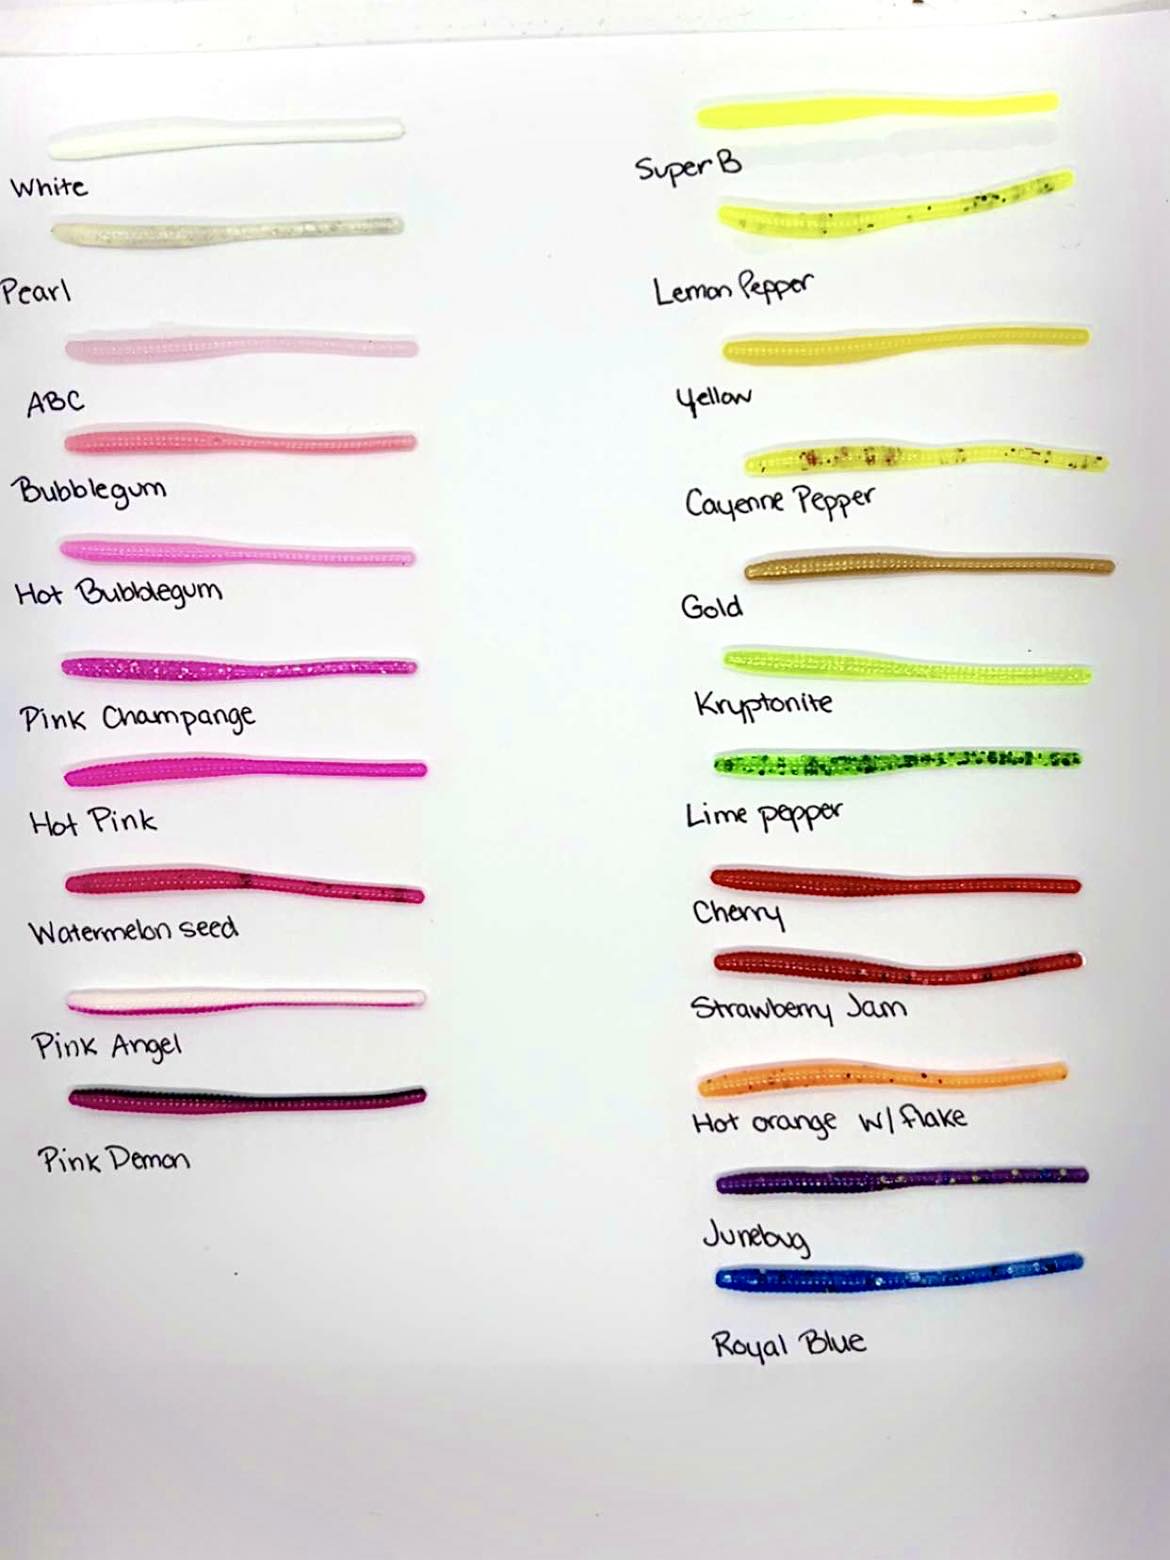 White
Pearl
ABC
Bubblegum
Hot Bubblegum
Pink Champange
Hot Pink
Watermelon seed
Pink Angel
Pink Demon
Super B
Lemon Pepper
Yellow
Cayenne Pepper
Gold
Kryptonite
Lime pepper
Cherry
Strawberry Jam
Hot orange w/ flake
Junebug
Royal Blue